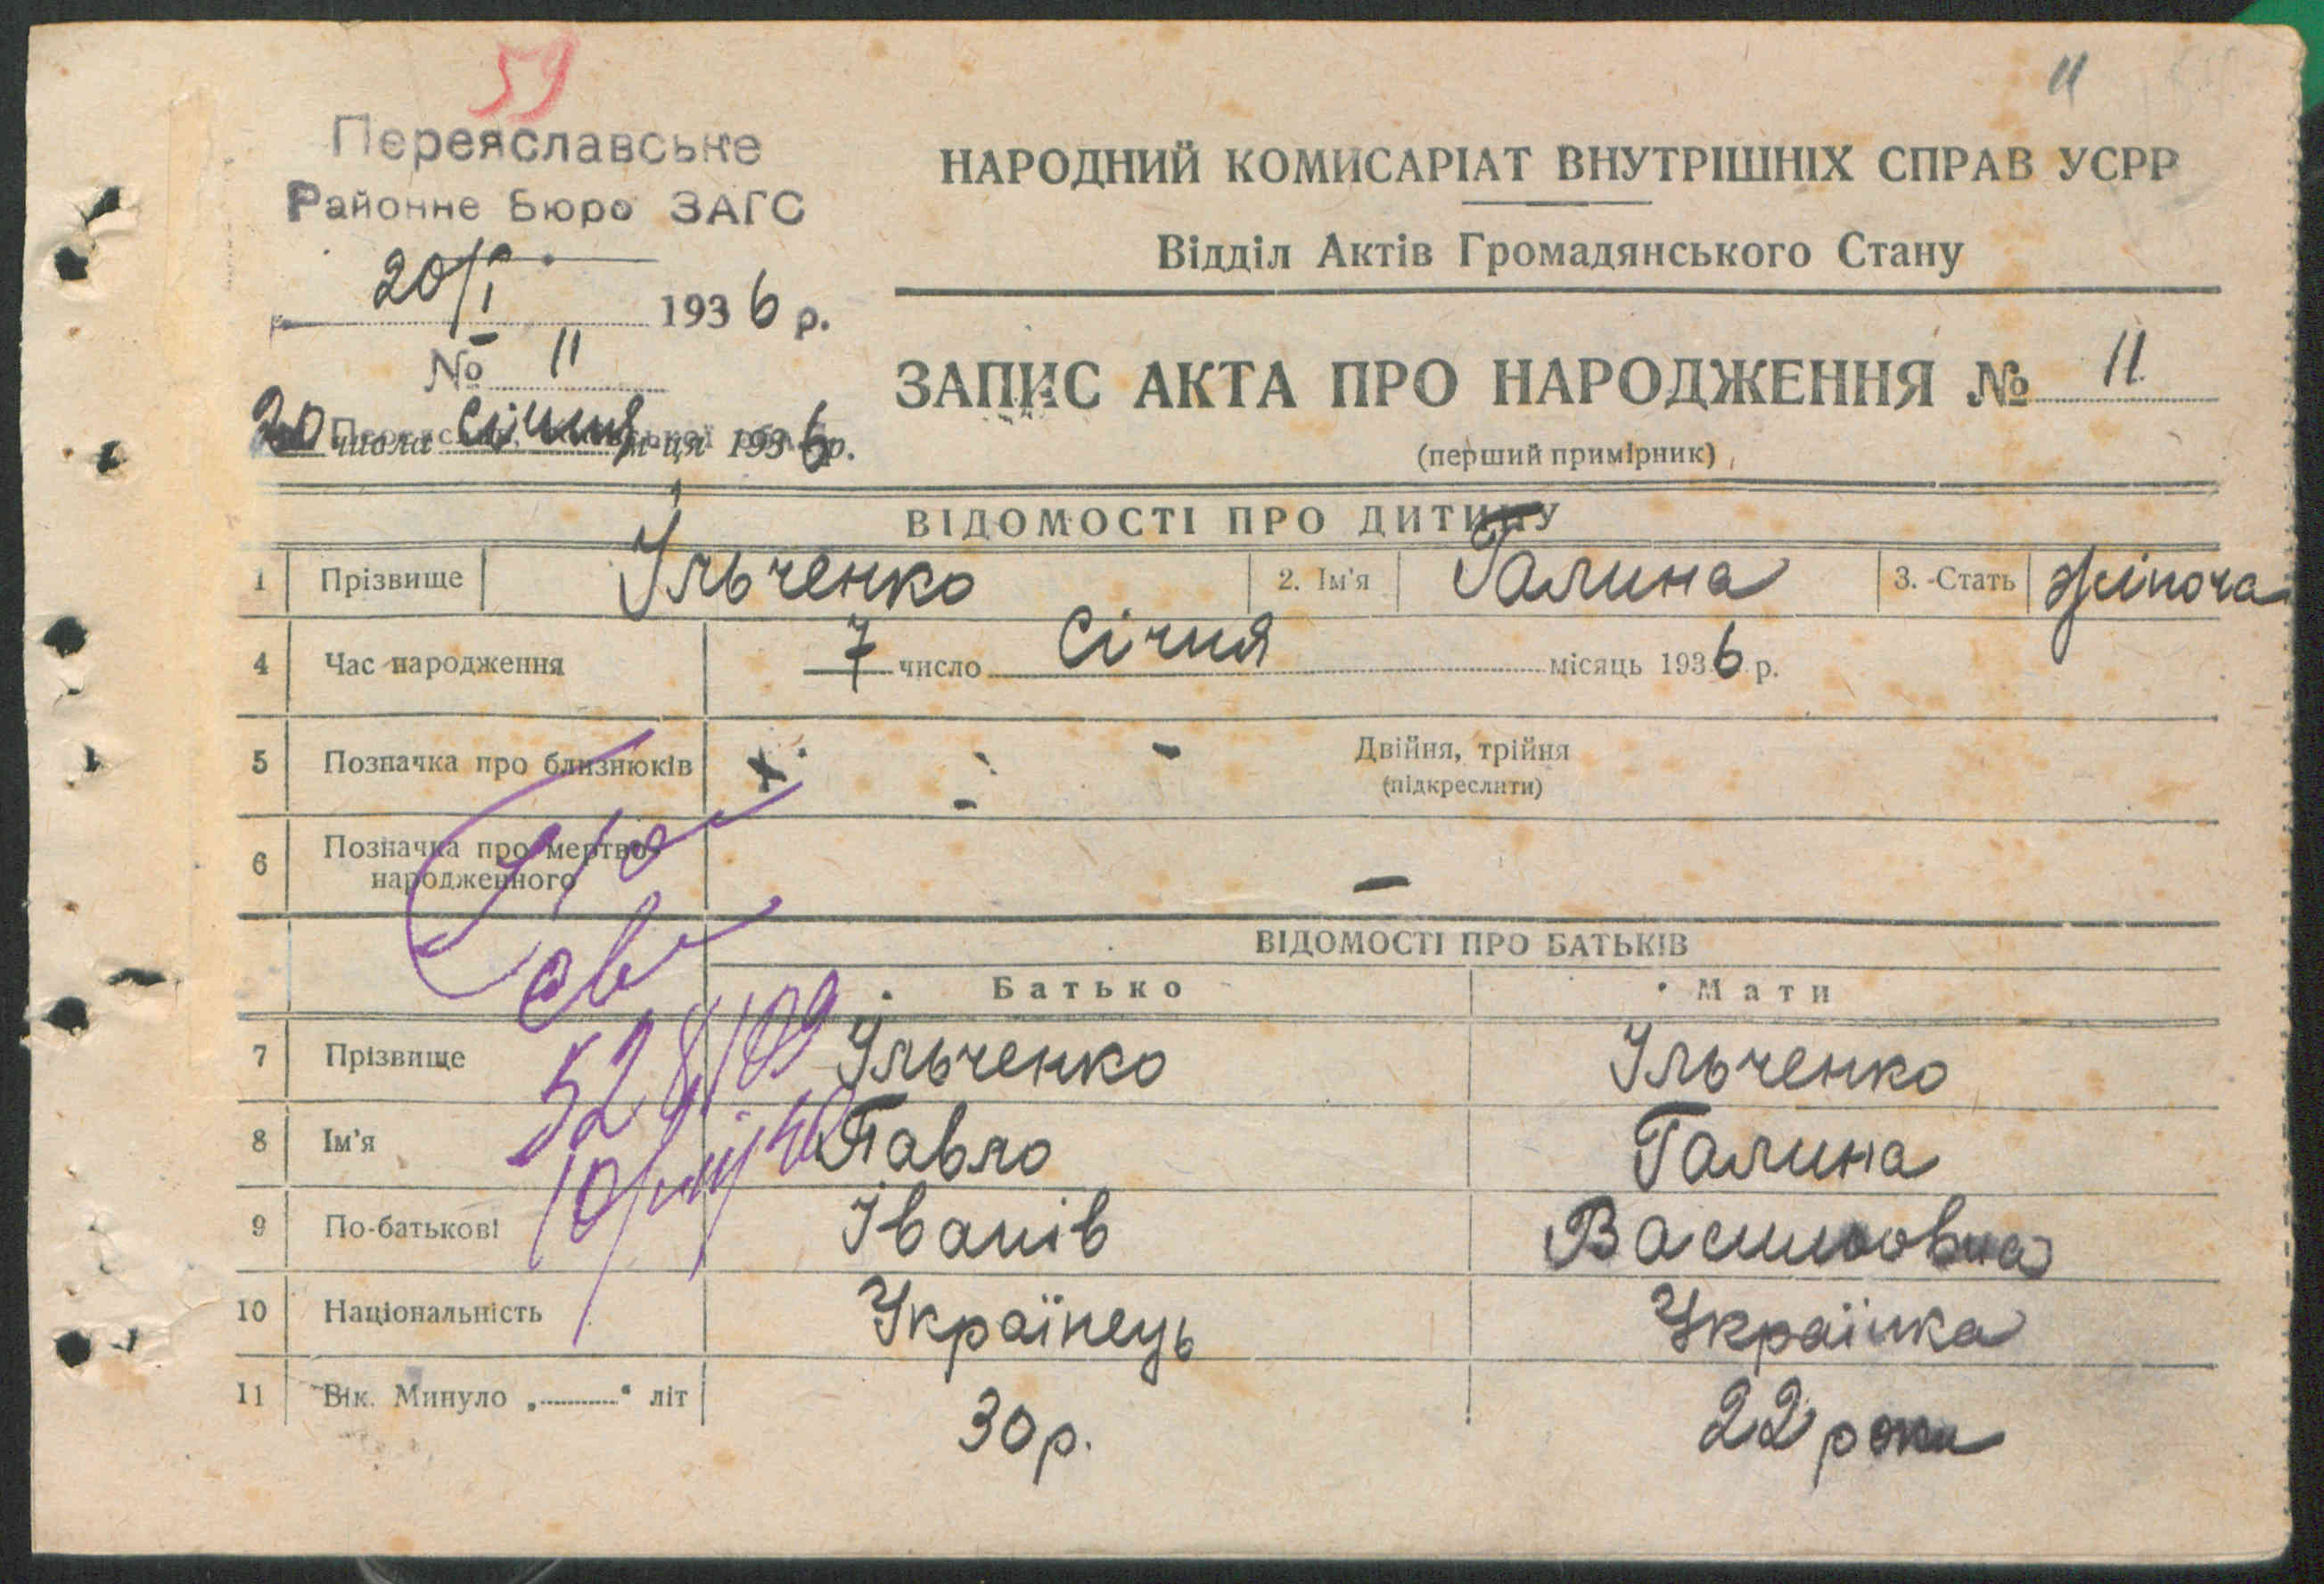 59
11
Переяславське
Районне Бюро ЗАГС
20/I 1936 р.
№ 11
20 числа січня м-ця 1936 р.
НАРОДНИЙ КОМИСАРІАТ ВНУТРІШНІХ СПРАВ УСРР
Відділ Актів Громадянського Стану
ЗАПИС АКТА ПРО НАРОДЖЕННЯ № 11
(перший примірник)
ВІДОМОСТІ ПРО ДИТИНУ
1 Прізвище Ільченко 2. Ім'я Галина 3. Стать жіноча
4 Час народження 7 число Січня місяць 1936 р.
5 Позначка про близнюків - - Двійня, трійня
(підкреслити)
6 Позначка про мертво-
народженного -
ВІДОМОСТІ ПРО БАТЬКІВ
Батько Мати
7 Прізвище Ільченко Ільченко
8 Ім'я Павло Галина
9 По-батькові Іванів Василовна
10 Національність Українець Українка
11 Вік. Минуло „......“ літ 30 р. 22 роки